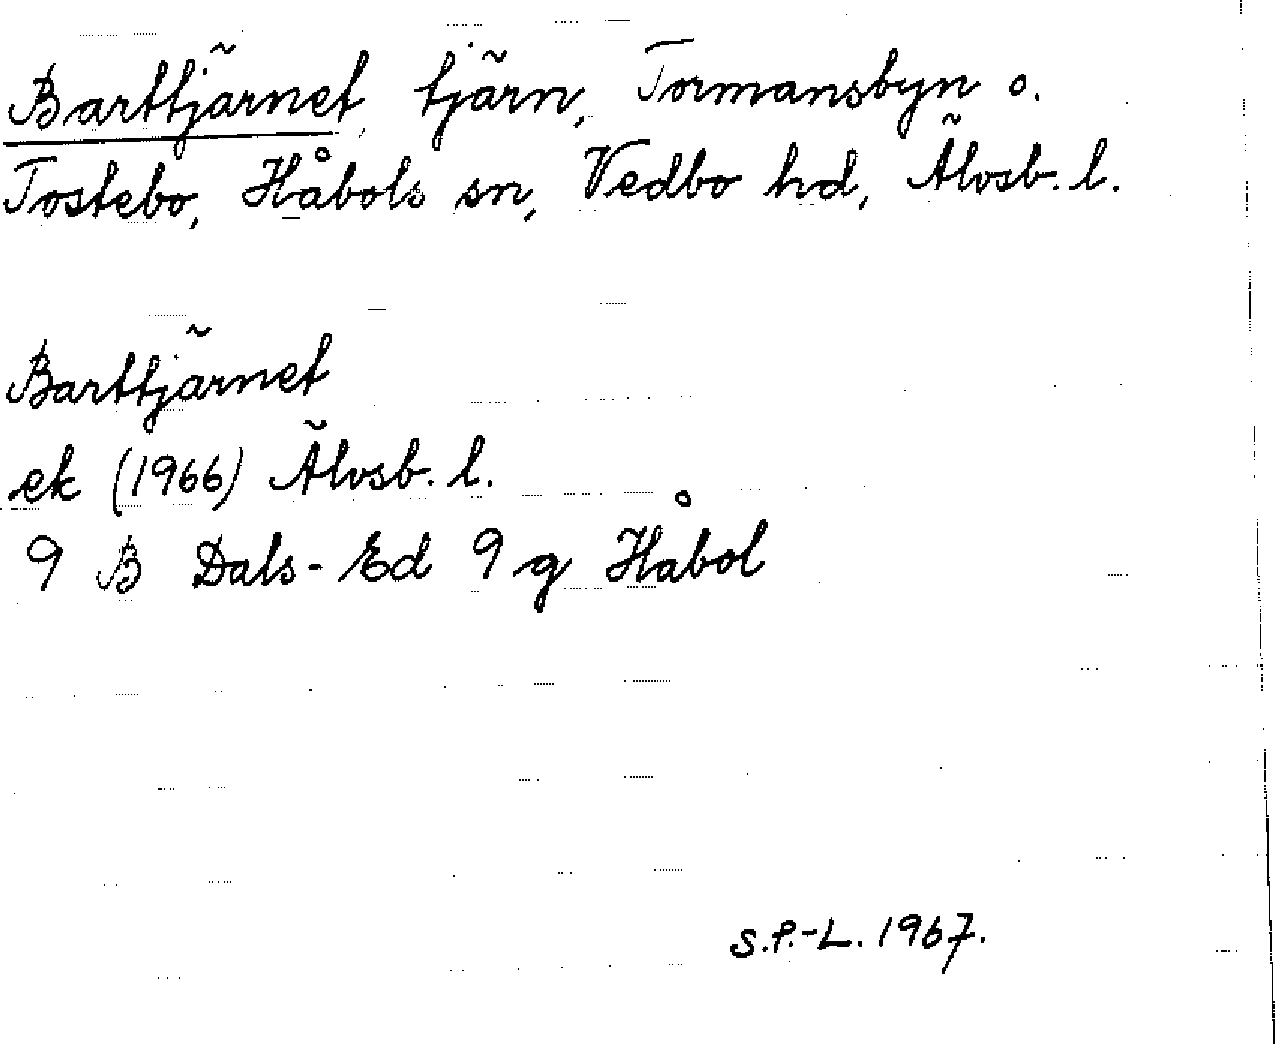 Barttjärnet, tjärn, Tormansbyn o.
Tostebo, Håbols sn, Vedbo hd, Älvsb. l.
Barttjärnet
ek (1966) Älvsb. l.
9 B Dals-Ed 9 g Håbol
S.P.-L. 1967.